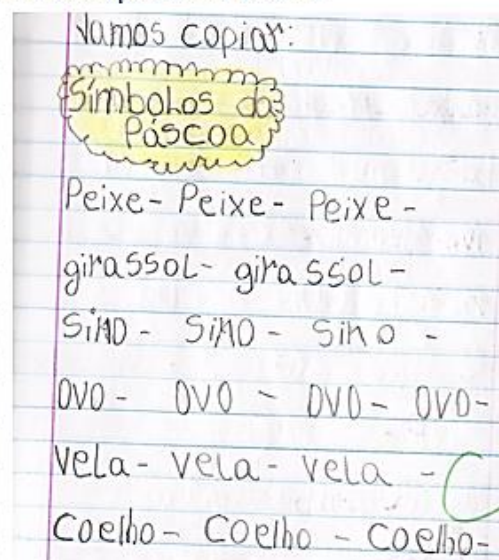 Vamos copiar:
Símbolos da
Páscoa
Peixe- Peixe- Peixe-
girassol- girassol-
Sino - Sino - Sino -
OVO - OVO - OVO - OVO-
vela- vela- vela -
Coelho- Coelho - Coelho-